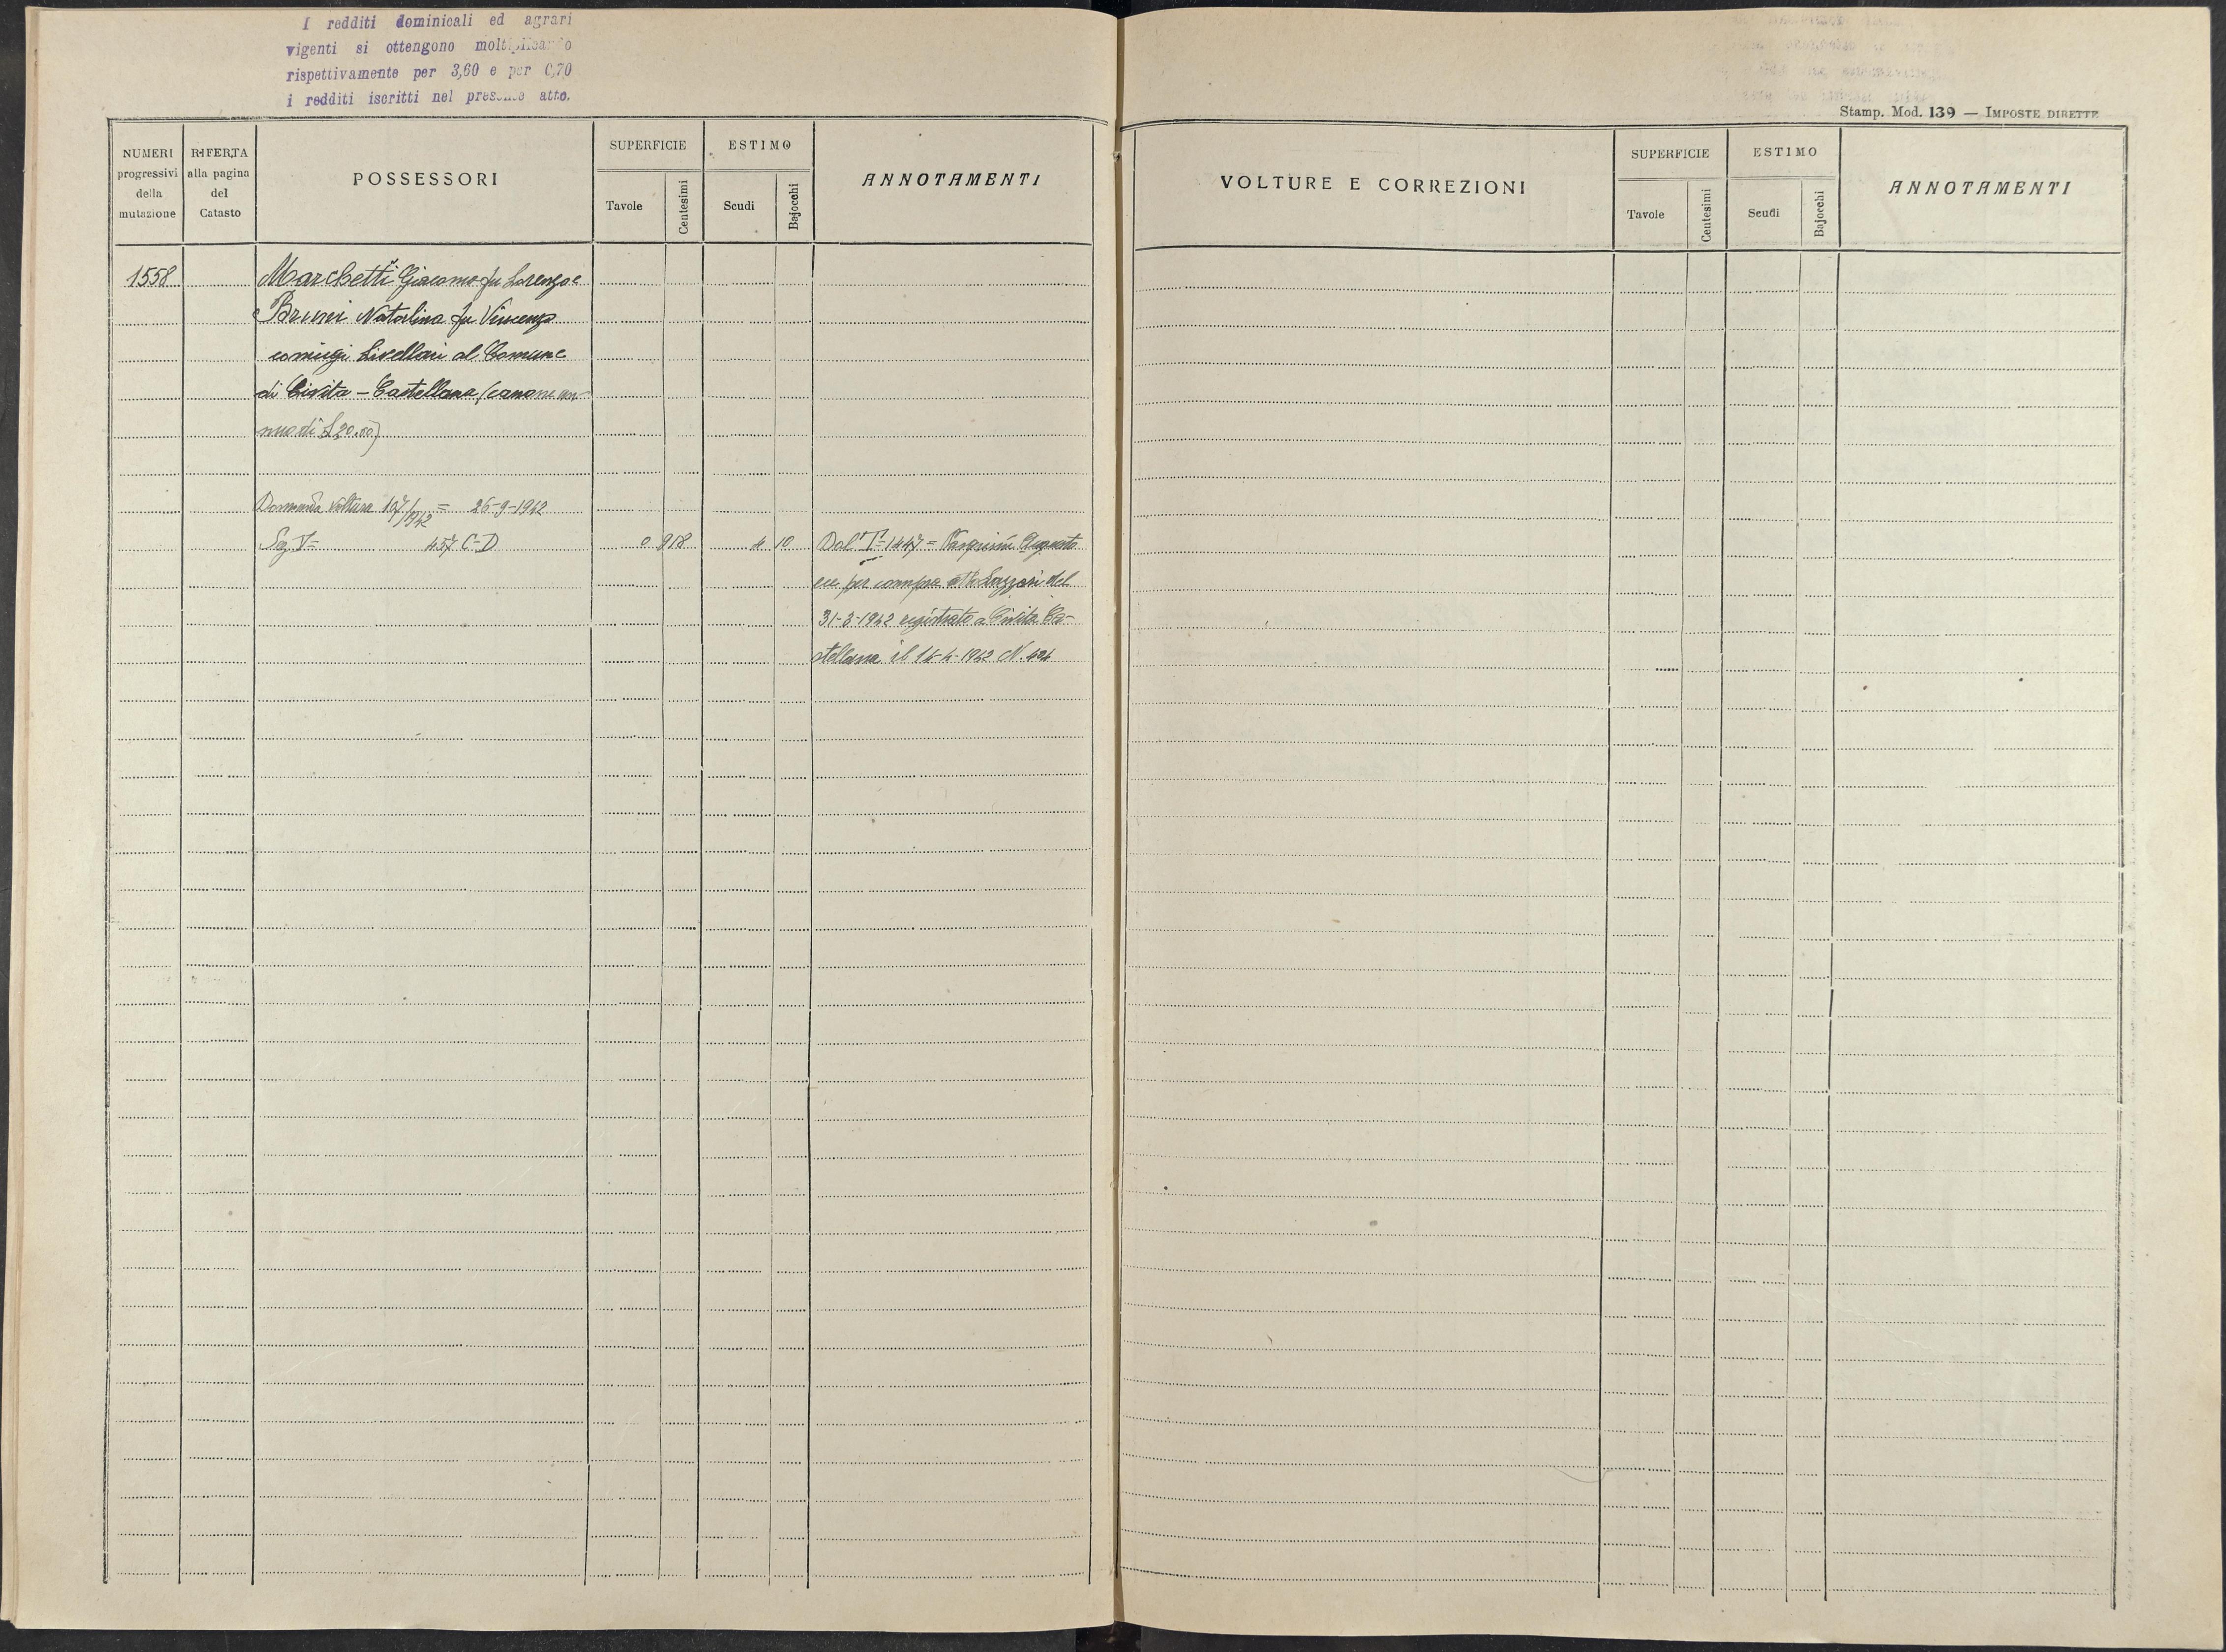 I redditi dominicali ed agrari
vigenti si ottengono moltiplicando
rispettivamente per 3,60 e per 0,70
i redditi iscritti nel presente atto.
Stamp. Mod. 139 — IMPOSTE DIRETTE
NUMERI progressivi della mutazione
RIFERTA alla pagina del Catasto
POSSESSORI
SUPERFICIE
Tavole
Centesimi
ESTIMO
Scudi
Bajocchi
ANNOTAMENTI
VOLTURE E CORREZIONI
SUPERFICIE
Tavole
Centesimi
ESTIMO
Scudi
Bajocchi
ANNOTAMENTI
1558 Marchetti Giacomo fu Lorenzo e
Bruni Natalina fu Vincenzo
coniugi Livellari al Comune
di Civita - Castellana (canone an-
nuo di £ 20.00)
Domanda Voltura 107/1942 = 26-9-1942
Sez V= 457 C-D 0 918 4 10 Dal T= 1447 = Augusto
ecc per compra Lazzari del
31-3-1942 registrato a Civita Ca-
stellana il 14-4-1942 N. 424